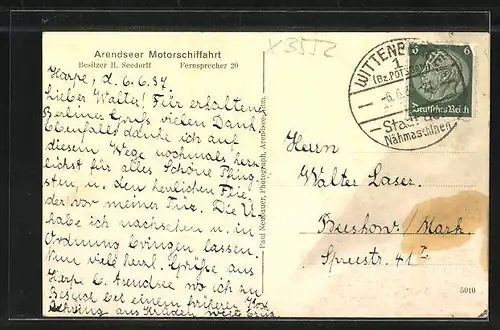 X3552
Arendseer Motorschiffahrt
Besitzer H. Seedorff Fernsprecher 20
Harpe, d. 6.6.37
Lieber Walter! Für erhaltene
Berliner Grüße vielen Dank
Ebenfalls danke ich auf
diesem Wege nochmals herz
lichst für alles Schöne Pfing
sten, u. den herrlichen
vor meiner Türe. Die
habe ich nachsehen u. in
Ordnung bringen lassen.
Nun viele herzl. Grüße aus
Harpe b. Arendsee wo ich zu
Besuch bei einem früheren
aus Krüden
Paul Neubauer, Photograph, Arendsee
WITTENBE
1
(Bz. POTSDAM)
-6.6.
Stadt der
Nähmaschinen
6 6
Deutsches Reich
Herrn
Walter Laser.
Beeskow / Mark.
Spreestr. 41 I
5010